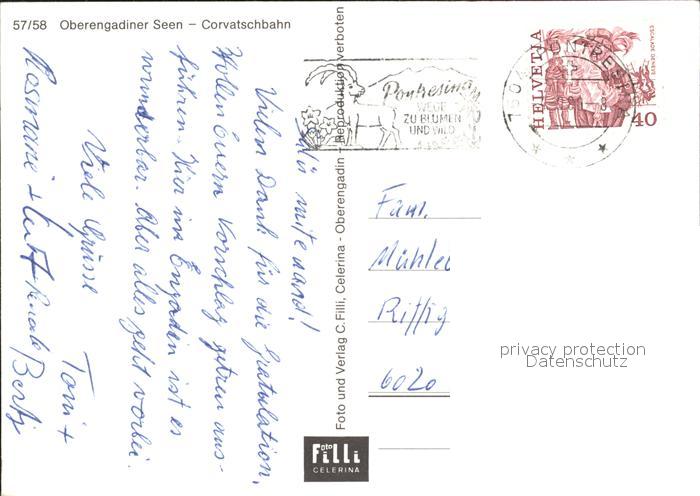 57/58 Oberengadiner Seen – Corvatschbahn
Foto und Verlag C. Filli, Celerina - Oberengadin – Reproduktion verboten
foto
Filli
CELERINA
Pontresina
WEGE
ZU BLUMEN
UND WILD
PONTRESINA
HELVETIA
ESCALADE GENEVE
40
mitenand!
Vielen Dank für die Gratulation.
Wollen Euern Vorschlag getreu aus-
führen. Hier im Engadin ist es
wunderbar. Aber alles geht vorbei.
Viele Grüsse
Toni +
Rosmarie + Kurt + Renate Bertj
Fam.
Mühle
Riffig
6020
privacy protection
Datenschutz